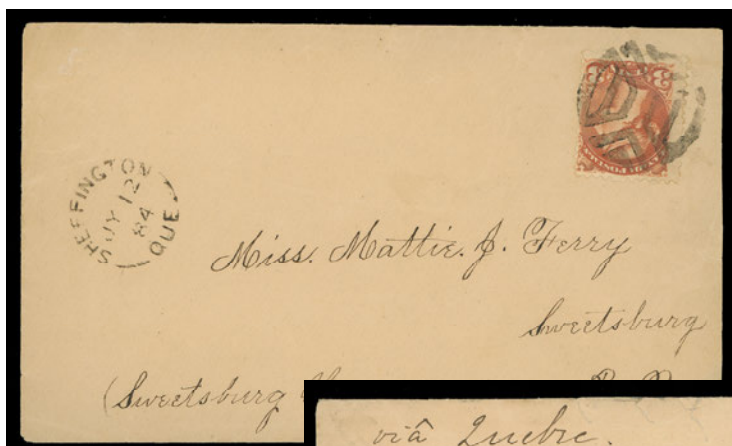 SHEFFINGTON
JY 12
84
QUE
3 3
Miss. Mattie. J. Ferry
Sweetsburg
(Sweetsburg
P.
viâ Quebec.